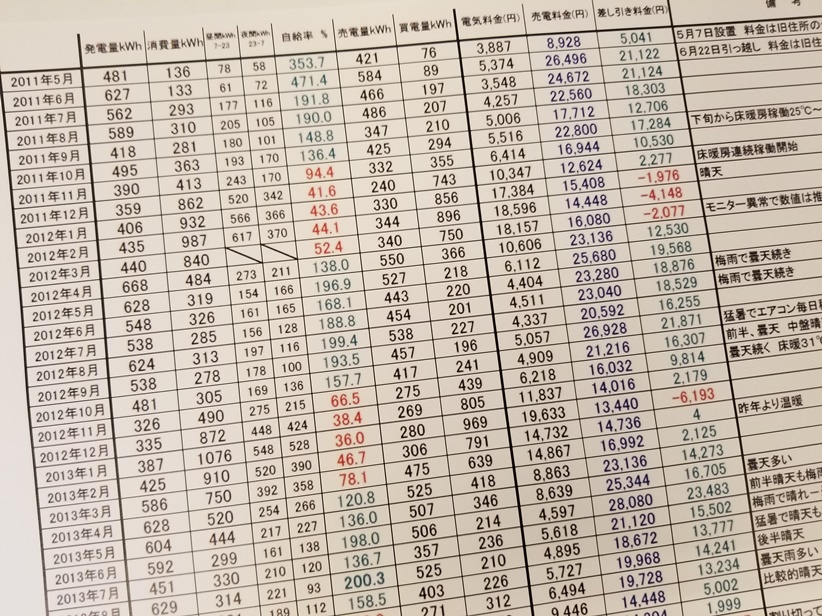 備 考
発電量kWh 消費量kWh 昼間kWh 7-23 夜間kWh 23-7 自給率 % 売電量kWh 買電量kWh 電気料金(円) 売電料金(円) 差し引き料金(円)
2011年5月 481 136 78 58 353.7 421 76 3,887 8,928 5,041 5月7日設置 料金は旧住所の
2011年6月 627 133 61 72 471.4 584 89 5,374 26,496 21,122 6月22日引っ越し 料金は旧住
2011年7月 562 293 177 116 191.8 466 197 3,548 24,672 21,124
2011年8月 589 310 205 105 190.0 486 207 4,257 22,560 18,303
2011年9月 418 281 180 101 148.8 347 210 5,006 17,712 12,706
2011年10月 495 363 193 170 136.4 425 294 5,516 22,800 17,284 下旬から床暖房稼働25℃～
2011年11月 390 413 243 170 94.4 332 355 6,414 16,944 10,530
2011年12月 359 862 520 342 41.6 240 743 10,347 12,624 2,277 床暖房連続稼働開始
2012年1月 406 932 566 366 43.6 330 856 17,384 15,408 -1,976 晴天
2012年2月 435 987 617 370 44.1 344 896 18,596 14,448 -4,148
2012年3月 440 840 52.4 340 750 18,157 16,080 -2,077 モニター異常で数値は推
2012年4月 668 484 273 211 138.0 550 366 10,606 23,136 12,530
2012年5月 628 319 154 166 196.9 527 218 6,112 25,680 19,568
2012年6月 548 326 161 165 168.1 443 220 4,404 23,280 18,876 梅雨で曇天続き
2012年7月 538 285 156 128 188.8 454 201 4,511 23,040 18,529 梅雨で曇天続き
2012年8月 624 313 197 116 199.4 538 227 4,337 20,592 16,255
2012年9月 538 278 178 100 193.5 457 196 5,057 26,928 21,871 猛暑でエアコン毎日
2012年10月 481 305 169 136 157.7 417 241 4,909 21,216 16,307 前半、曇天 中盤晴
2012年11月 326 490 275 215 66.5 275 439 6,218 16,032 9,814 曇天続く 床暖31℃
2012年12月 335 872 448 424 38.4 269 805 11,837 14,016 2,179
2013年1月 387 1076 548 528 36.0 280 969 19,633 13,440 -6,193
2013年2月 425 910 520 390 46.7 306 791 14,732 14,736 4 昨年より温暖
2013年3月 586 750 392 358 78.1 475 639 14,867 16,992 2,125
2013年4月 628 520 254 266 120.8 525 418 8,863 23,136 14,273
2013年5月 604 444 217 227 136.0 507 346 8,639 25,344 16,705 曇天多い
2013年6月 592 299 161 138 198.0 506 214 4,597 28,080 23,483 前半晴天も梅
2013年7月 451 330 210 120 136.7 357 236 5,618 21,120 15,502 梅雨で晴れ
2013年8月 629 314 221 93 200.3 525 210 4,895 18,672 13,777 猛暑で晴天も
189 112 158.5 403 226 5,727 19,968 14,241 後半晴天
271 312 6,494 19,728 13,234 曇天雨多い
9,446 14,448 5,002 比較的晴天
1,999